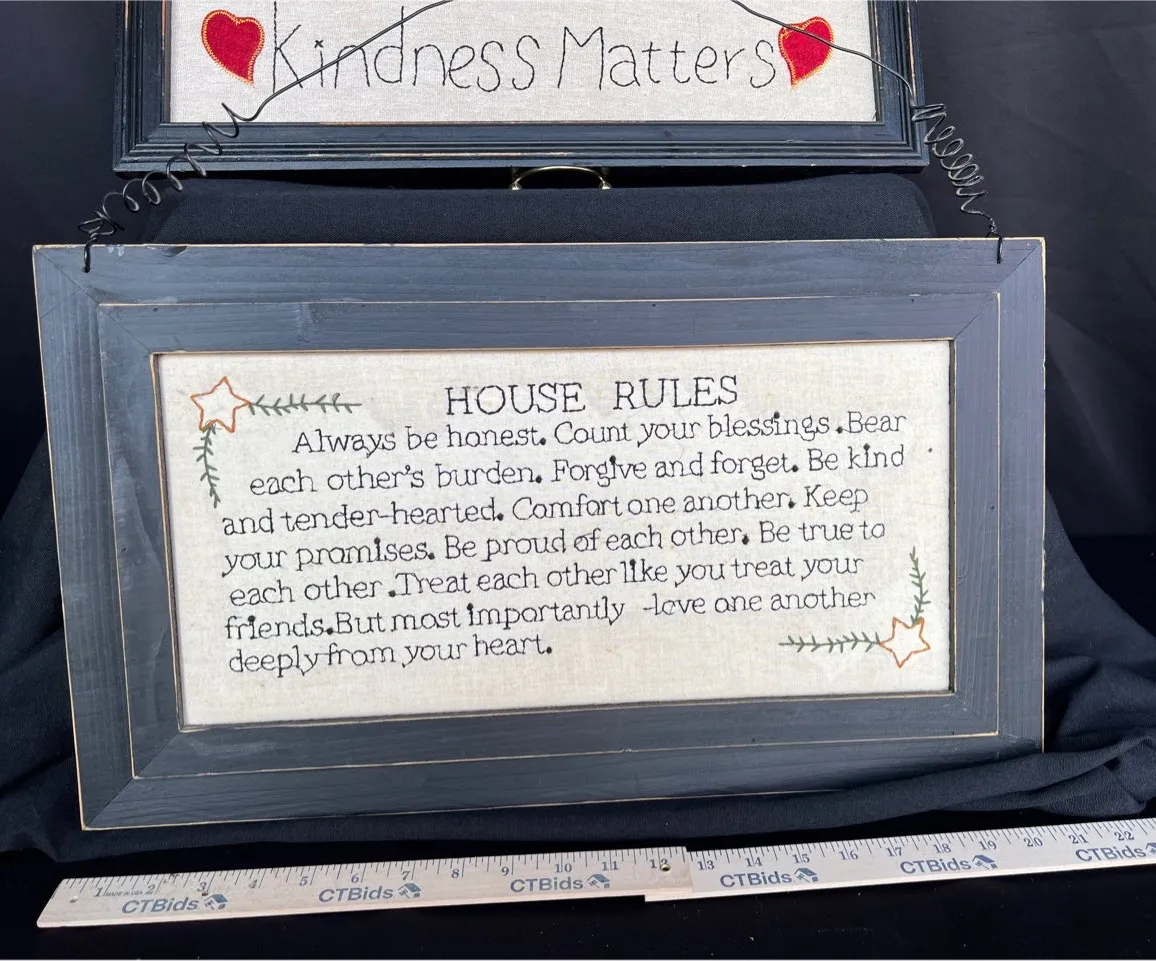 Kindness Matters
HOUSE RULES
Always be honest. Count your blessings. Bear
each other's burden. Forgive and forget. Be kind
and tender-hearted. Comfort one another. Keep
your promises. Be proud of each other. Be true to
each other. Treat each other like you treat your
friends. But most importantly -love one another
deeply from your heart.
1 MADE IN USA 2 3 4 5 6 7 8 9 10 11 12 13 14 15 16 17 18 19 20 21 22
CTBids CTBids CTBids CTBids CTBids CTBids